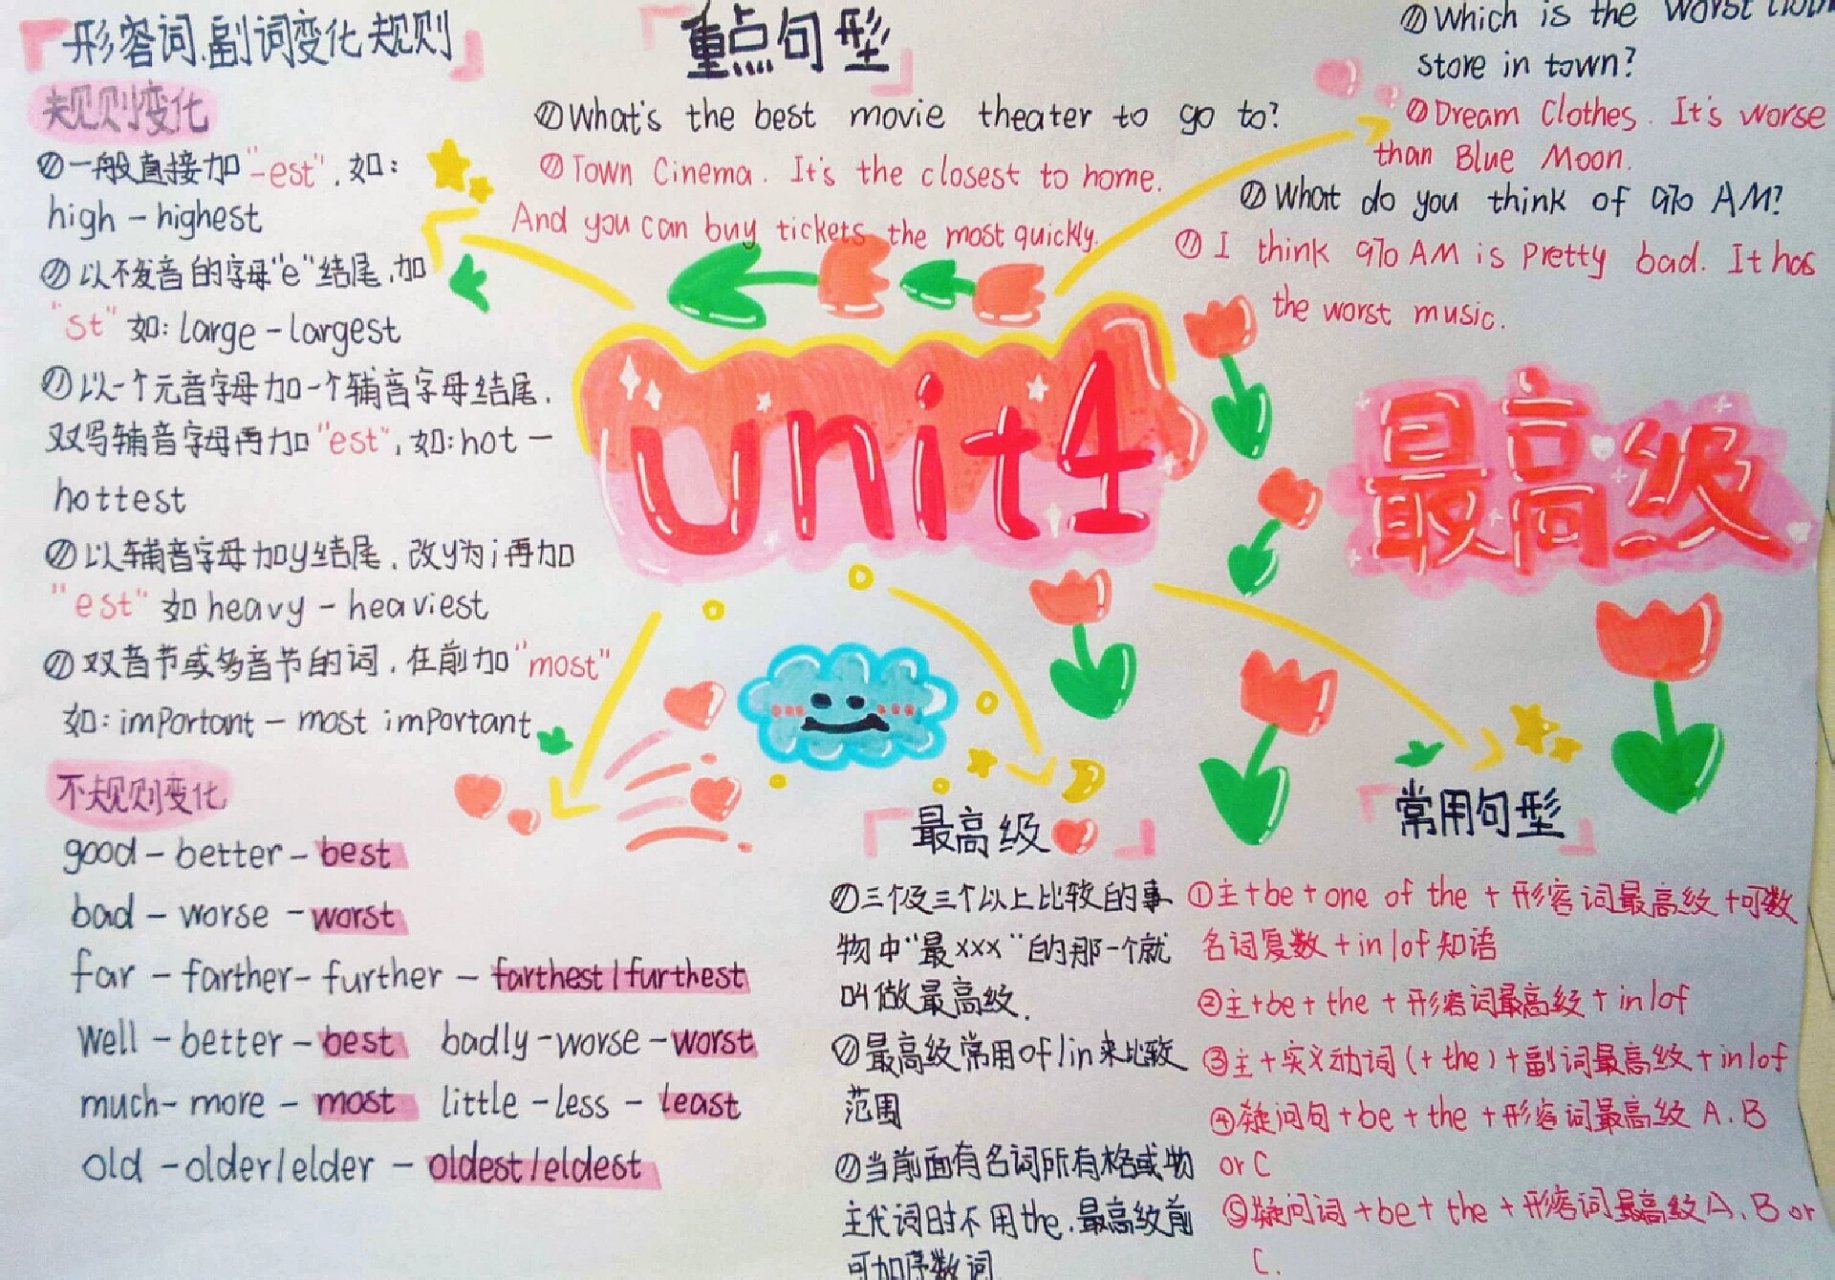 形容词.副词变化规则
规则变化
①一般直接加"-est",如:
high-highest
①以不发音的字母"e"结尾,加
"st"如:large-largest
①以一个元音字母加一个辅音字母结尾,
双写辅音字母再加"est",如:hot-
hottest
①以辅音字母加y结尾,改y为i再加
"est"如heavy-heaviest
①双音节或多音节的词,在前加"most"
如:important-most important
不规则变化
good-better-best
bad-worse-worst
far-farther-further-farthest/furthest
well-better-best badly-worse-worst
much-more-most little-less-least
old-older/elder-oldest/eldest
重点句型
①What's the best movie theater to go to?
①Town Cinema. It's the closest to home.
And you can buy tickets the most quickly.
①Which is the worst
store in town?
①Dream Clothes. It's worse
than Blue Moon.
①What do you think of 970 AM?
①I think 970 AM is pretty bad. It has
the worst music.
unit4
最高级
最高级
①三个及三个以上比较的事
物中"最xxx"的那一个就
叫做最高级.
①最高级常用of/in来比较
范围
①当前面有名词所有格或物
主代词时不用the,最高级前
可加序数词
常用句型
①主+be+one of the+形容词最高级+可数
名词复数+in/of短语
②主+be+the+形容词最高级+in/of
③主+实义动词(+the)+副词最高级+in/of
④疑问句+be+the+形容词最高级A.B
or C
⑤疑问词+be+the+形容词最高级A.B or
C.